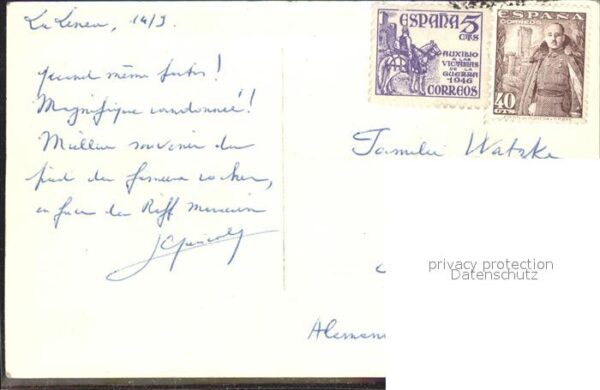 La Línea, 14/3.
quand même [...] !
Magnifique randonnée !
Meilleur souvenir du
pied du fameux rocher,
en face du Riff marocain
ESPAÑA 5 CTS
AUXILIO
A LAS
VICTIMAS
DE LA
GUERRA
1946
CORREOS
ESPAÑA
CORREOS
40 CTS
Familie Watzke
privacy protection
Datenschutz
Aleman